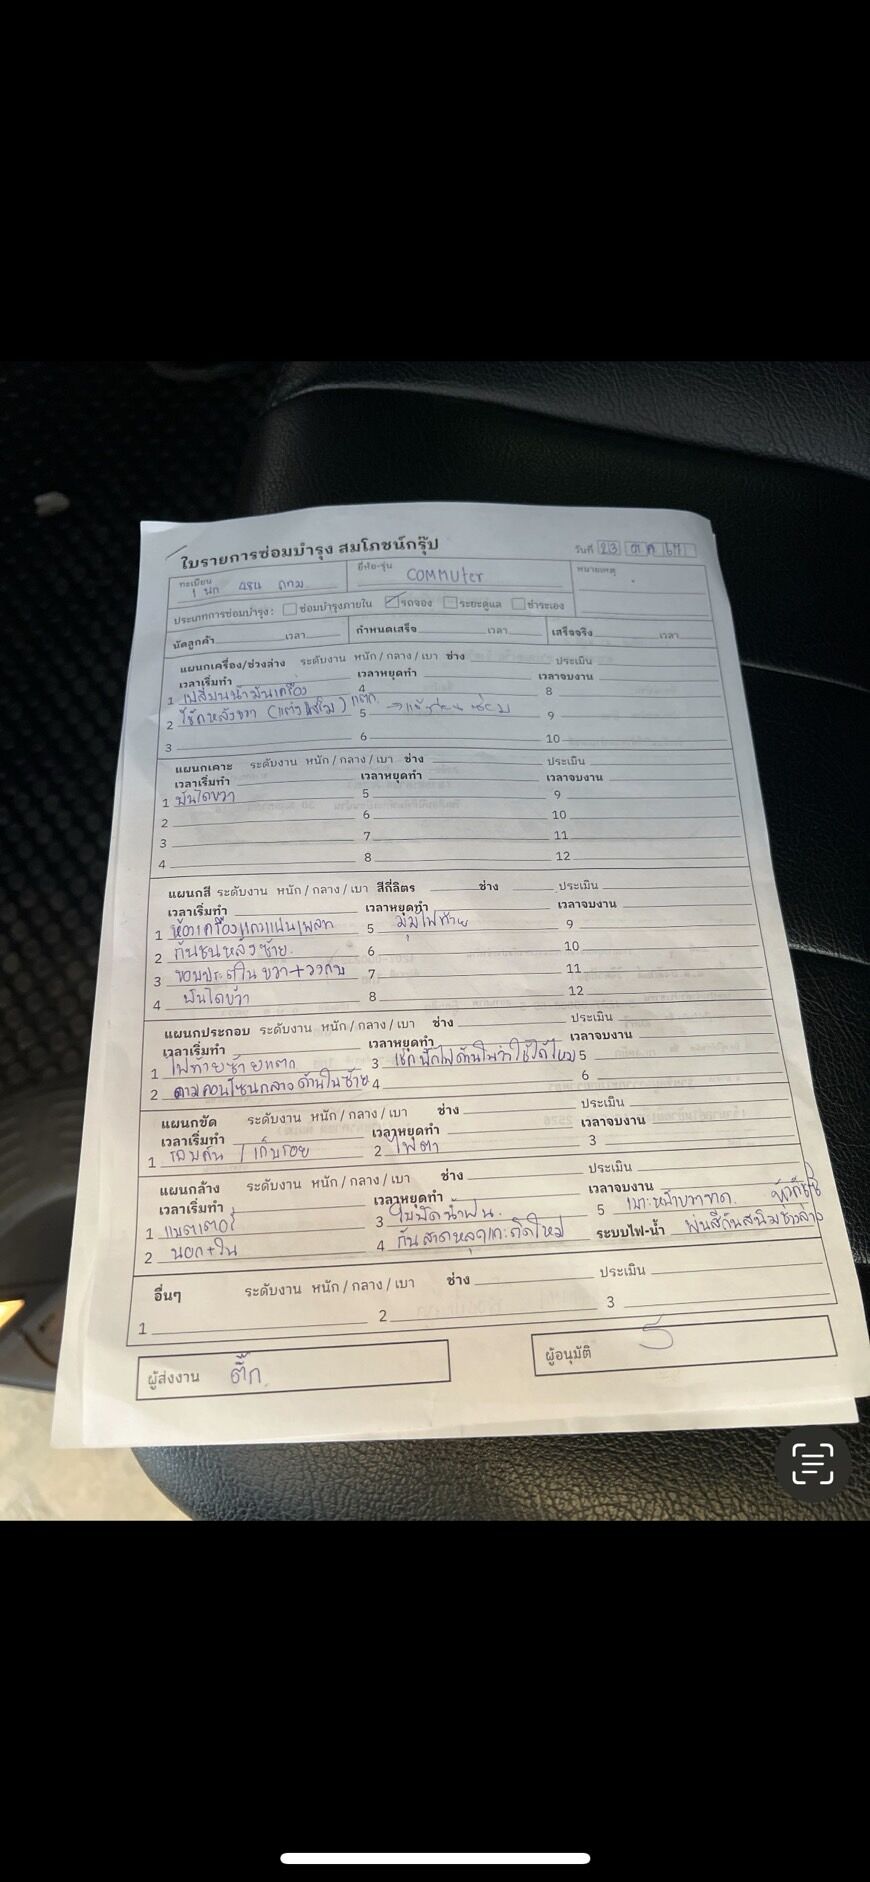 ใบรายการซ่อมบำรุง สมโภชน์กรุ๊ป
วันที่ 23 ตค 67
ทะเบียน 1 นก กทม ยี่ห้อ-รุ่น COMMUter หมายเหตุ
ประเภทการซ่อมบำรุง: ซ่อมบำรุงภายใน รถจอง ระยะดูแล ชำระเอง
นัดลูกค้า เวลา กำหนดเสร็จ เวลา เสร็จจริง เวลา
แผนกเครื่อง/ช่วงล่าง ระดับงาน หนัก / กลาง / เบา ช่าง ประเมิน
เวลาเริ่มทำ เวลาหยุดทำ เวลาจบงาน
1 เปลี่ยนน้ำมันเครื่อง 4 8
2 โช้คหลังขวา แตก 5 ซ่อม 9
3 6 10
แผนกเคาะ ระดับงาน หนัก / กลาง / เบา ช่าง ประเมิน
เวลาเริ่มทำ เวลาหยุดทำ เวลาจบงาน
1 บันไดขวา 5 9
2 6 10
3 7 11
4 8 12
แผนกสี ระดับงาน หนัก / กลาง / เบา สีกี่ลิตร ช่าง ประเมิน
เวลาเริ่มทำ เวลาหยุดทำ เวลาจบงาน
1 ห้องเครื่อง 5 มุมไฟท้าย 9
2 กันชนหลังซ้าย 6 10
3 ขอบประตูใน ขวา+วงกบ 7 11
4 บันไดขวา 8 12
แผนกประกอบ ระดับงาน หนัก / กลาง / เบา ช่าง
เวลาเริ่มทำ เวลาหยุดทำ เวลาจบงาน
1 ไฟท้ายซ้ายแตก 3 เช็คปลั๊กไฟด้านในว่าใช้ได้ไหม 5
2 ดามคอนโซนกลางด้านในซ้าย 4 6
แผนกขัด ระดับงาน หนัก / กลาง / เบา ช่าง ประเมิน
เวลาเริ่มทำ เวลาหยุดทำ เวลาจบงาน
1 รอบคัน / เก็บรอย 2 ไฟตา 3
แผนกล้าง ระดับงาน หนัก / กลาง / เบา ช่าง ประเมิน
เวลาเริ่มทำ เวลาหยุดทำ เวลาจบงาน
1 แบตเตอรี่ 3 ใบปัดน้ำฝน 5 เบาะหน้าขวาขาด
2 นอก+ใน 4 กันสาดหลุดแกะติดใหม่ ระบบไฟ-น้ำ พ่นสีกันสนิมช่วงล่าง
อื่นๆ ระดับงาน หนัก / กลาง / เบา ช่าง ประเมิน
1 2 3
ผู้ส่งงาน ติ๊ก ผู้อนุมัติ